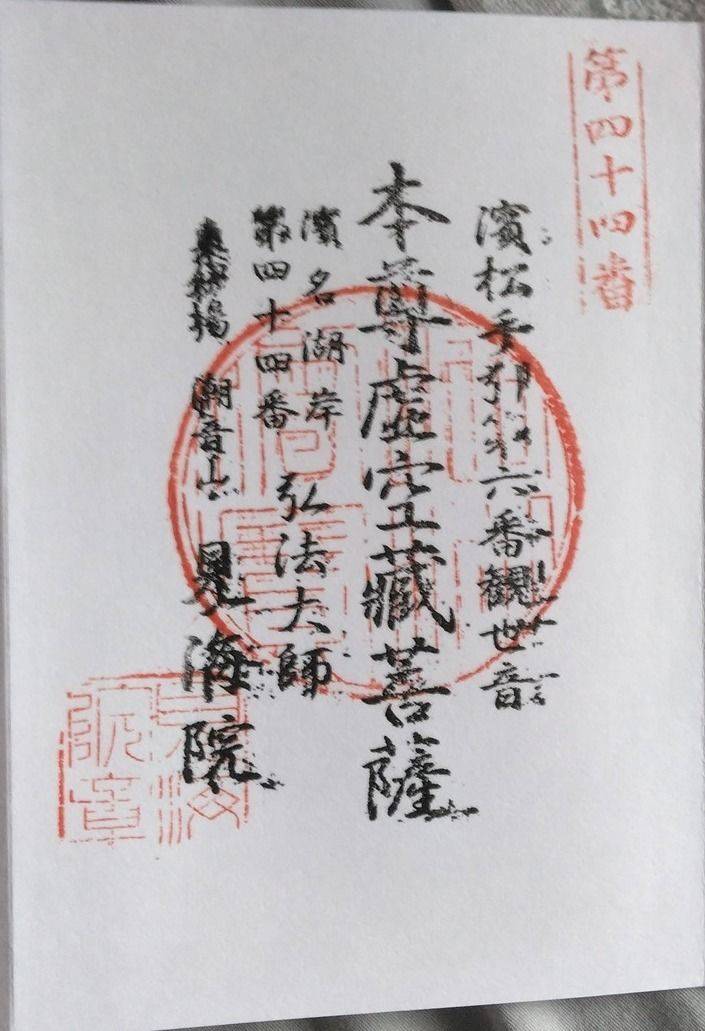 第四十四番
濱松手引第六番観世音
本尊虚空藏菩薩
濱名湖岸 弘法大師
第四十四番
潮音山 見海院